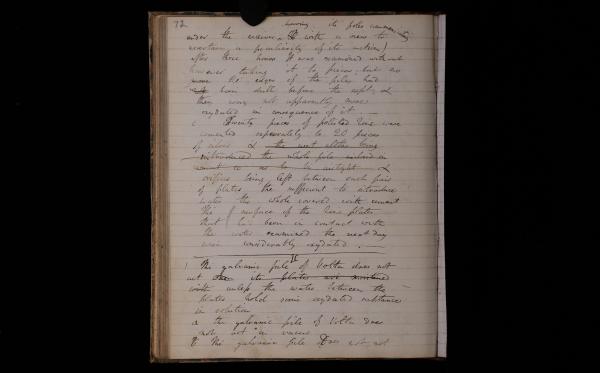 72
having its poles
under the receiver with a view to
ascertain a peculiarity of its action)
after three hours it was examined without
however taking it to pieces, but as
some the edges of the plates had
been dealt before the expt. &
they were not apparently more
oxydated in consequence of it. —
Twenty pieces of polished Zinc were
cemented separately to 20 pieces
of silver & the next
introduced the whole pile
&
orifices being left between each pair
of plates, the sufficient to introduce
water the whole covered with cement
The surfaces of the Zinc plates
that had been in contact with
the water examined the next day
were considerably oxydated. —
1 The galvanic pile of Volta does not
act its plates not moistened
unless the water between the
plates hold some oxydated substance
in solution
2 the galvanic pile of Volta does
not act in vacuo
The galvanic pile Does not, not